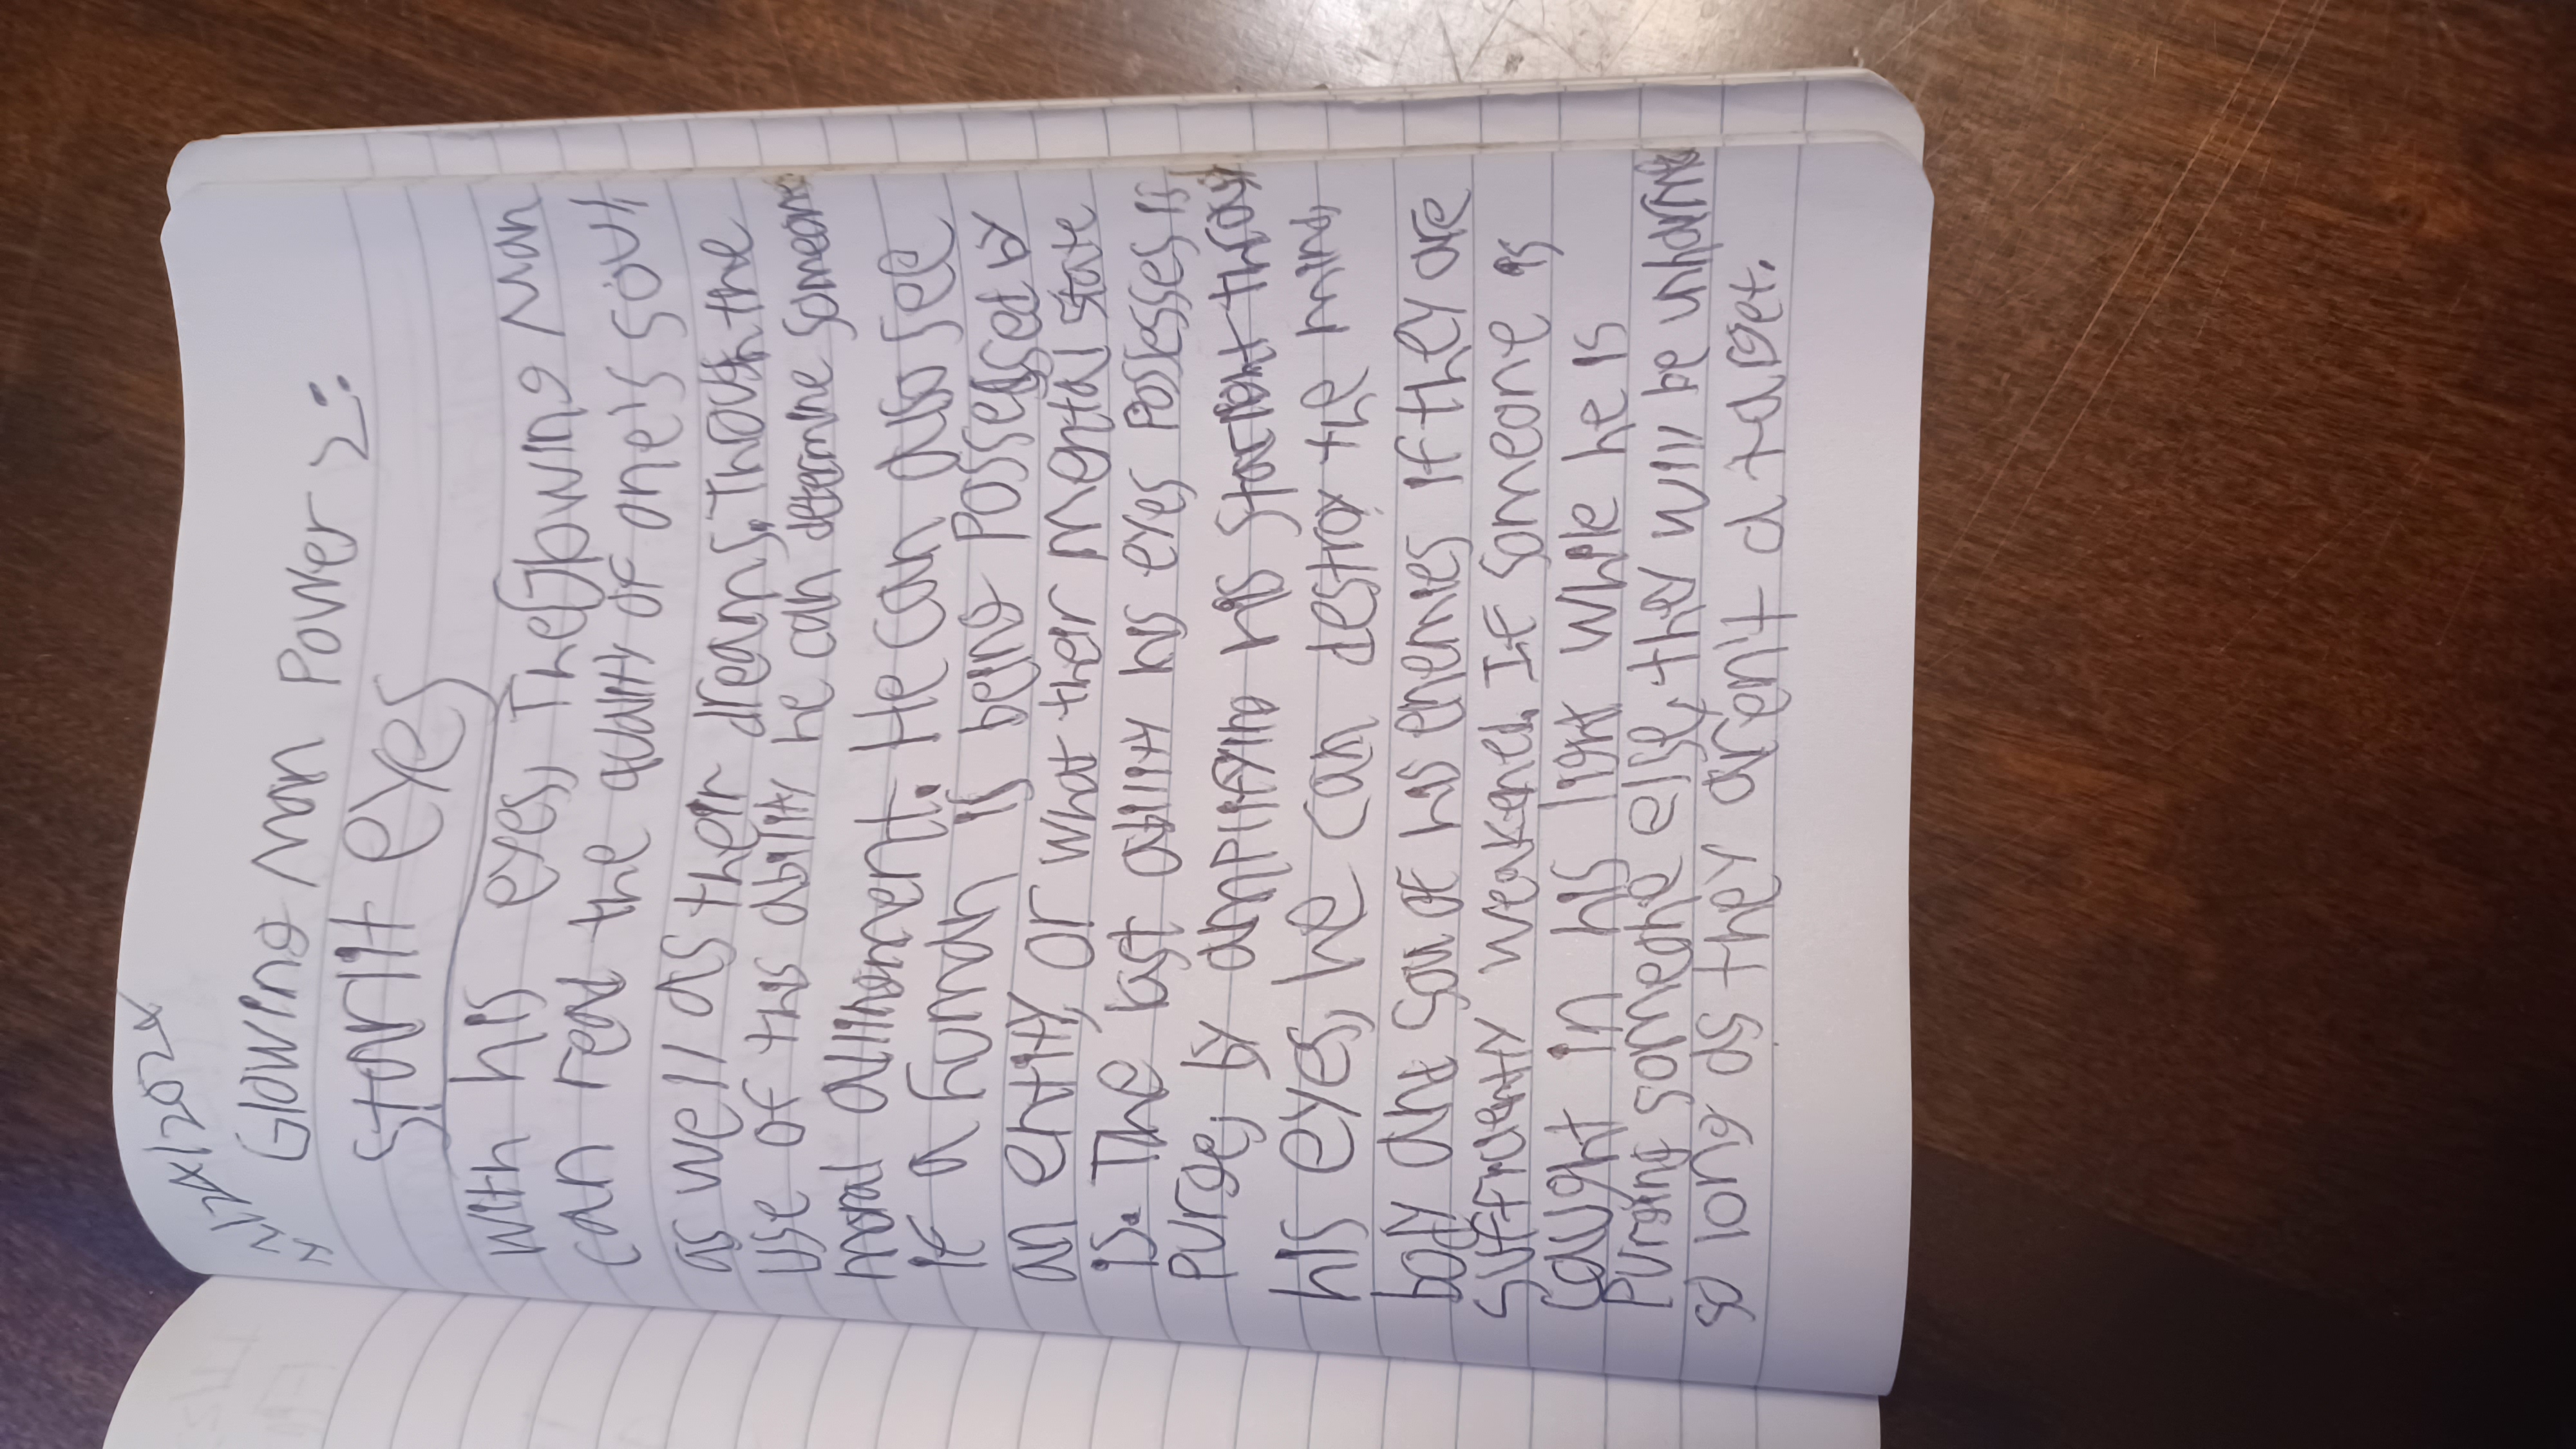 11/24/2024
Glowing Man Power 2:
Starlit eyes
With his eyes, The Glowing Man
can read the quality of one's soul,
as well as their dreams. Through the
use of this ability he can determine someone
moral allinement. He can also see
if a human is being Possessed by
an entity, or what their mental state
is. The last ability his eyes Possesses is
Purge, by amplifying his starlight through
his eyes, he can destroy the mind,
body and soul of his enemies if they are
sufficiently weakened. If someone is
caught in his light while he is
Purging someone else, they will be unharmed
so long as they aren't a target.